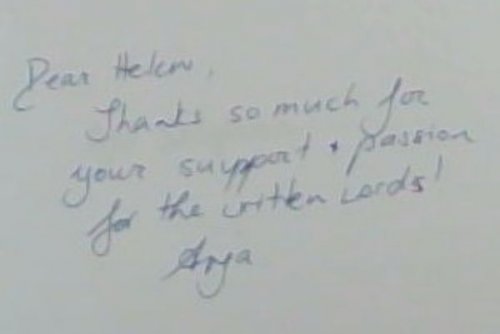 Dear Helen,
Thanks so much for
your support + passion
for the written words!
Anya